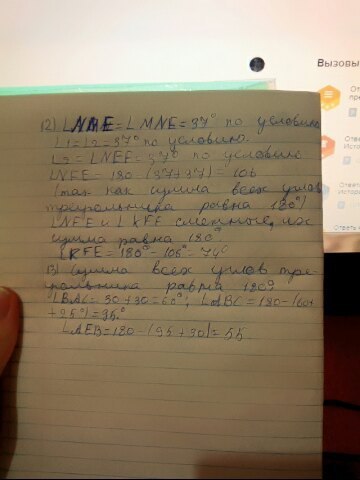 12) ∠NME = ∠MNE = 37° по условию
∠1 = ∠2 = 37° по условию.
∠2 = ∠NEF = 37° по условию
∠NFE = 180 - (37+37) = 106
(так как сумма всех углов
треугольника равна 180°)
∠NFE и ∠KFE смежные, их
сумма равна 180°
∠KFE = 180° - 106° = 74°
13) Сумма всех углов тре-
угольника равна 180°
∠BAC = 30+30=60°; ∠ABC = 180-(60+
+25°)=95°
∠AEB=180-(95+30)=55
Вызовы
От
пре
От
Исто
От
Ответь н